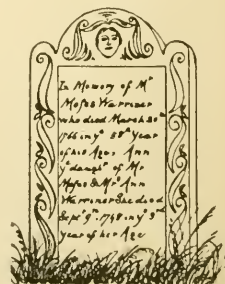 In Memory of Mr
Moses Warriner
who died March 20th
1766 in ye 58th Year
of his Age, Ann
ye daughr of Mr
Moses & Mrs Ann
Warriner She died
Sept 9th 1748 in ye 3rd
year of her Age